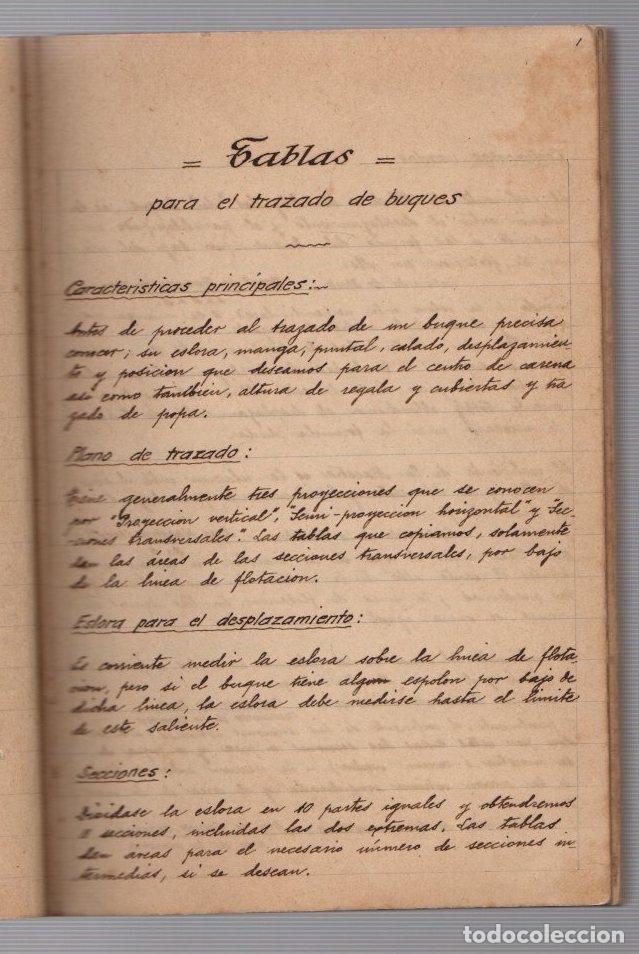 1
= Tablas =
para el trazado de buques
Caracteristicas principales:
Antes de proceder al trazado de un buque precisa
conocer; su eslora, manga, puntal, calado, desplazamien-
to y posicion que deseamos para el centro de carena
asi como tambien, altura de regala y cubiertas y tra
zado de popa.
Plano de trazado:
Tiene generalmente tres proyecciones que se conocen
por "Proyeccion vertical", "Semi-proyección horizontal" y "Sec-
ciones transversales". Las tablas que copiamos, solamente
dan las áreas de las secciones transversales, por bajo
de la linea de flotación.
Eslora para el desplazamiento:
Es corriente medir la eslora sobre la linea de flota
cion, pero si el buque tiene algun espolón por bajo de
dicha linea, la eslora debe medirse hasta el limite
de este saliente.
Secciones:
Dividase la eslora en 10 partes iguales y obtendremos
11 secciones, incluidas las dos extremas. Las tablas
dan áreas para el necesario número de secciones in
termedias, si se desean.
todocoleccion